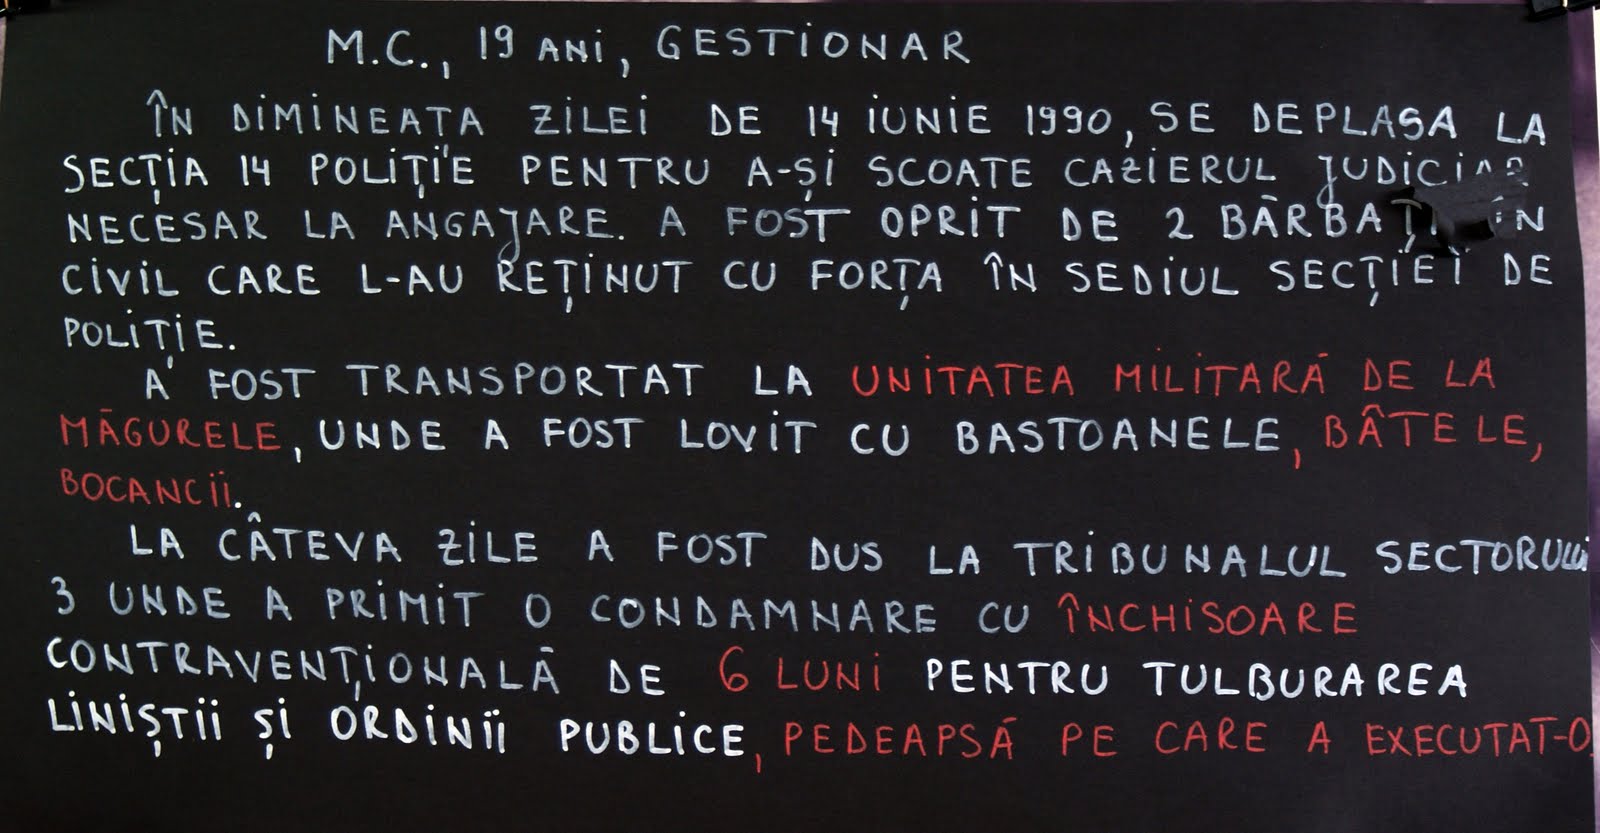 M.C., 19 ANI, GESTIONAR
ÎN DIMINEAȚA ZILEI DE 14 IUNIE 1990, SE DEPLASA LA
SECȚIA 14 POLIȚIE PENTRU A-ȘI SCOATE CAZIERUL JUDICIAR
NECESAR LA ANGAJARE. A FOST OPRIT DE 2 BĂRBAȚI ÎN
CIVIL CARE L-AU REȚINUT CU FORȚA ÎN SEDIUL SECȚIEI DE
POLIȚIE.
A FOST TRANSPORTAT LA UNITATEA MILITARĂ DE LA
MĂGURELE, UNDE A FOST LOVIT CU BASTOANELE, BÂTELE,
BOCANCII.
LA CÂTEVA ZILE A FOST DUS LA TRIBUNALUL SECTORULUI
3 UNDE A PRIMIT O CONDAMNARE CU ÎNCHISOARE
CONTRAVENȚIONALĂ DE 6 LUNI PENTRU TULBURAREA
LINIȘTII ȘI ORDINII PUBLICE, PEDEAPSĂ PE CARE A EXECUTAT-O.